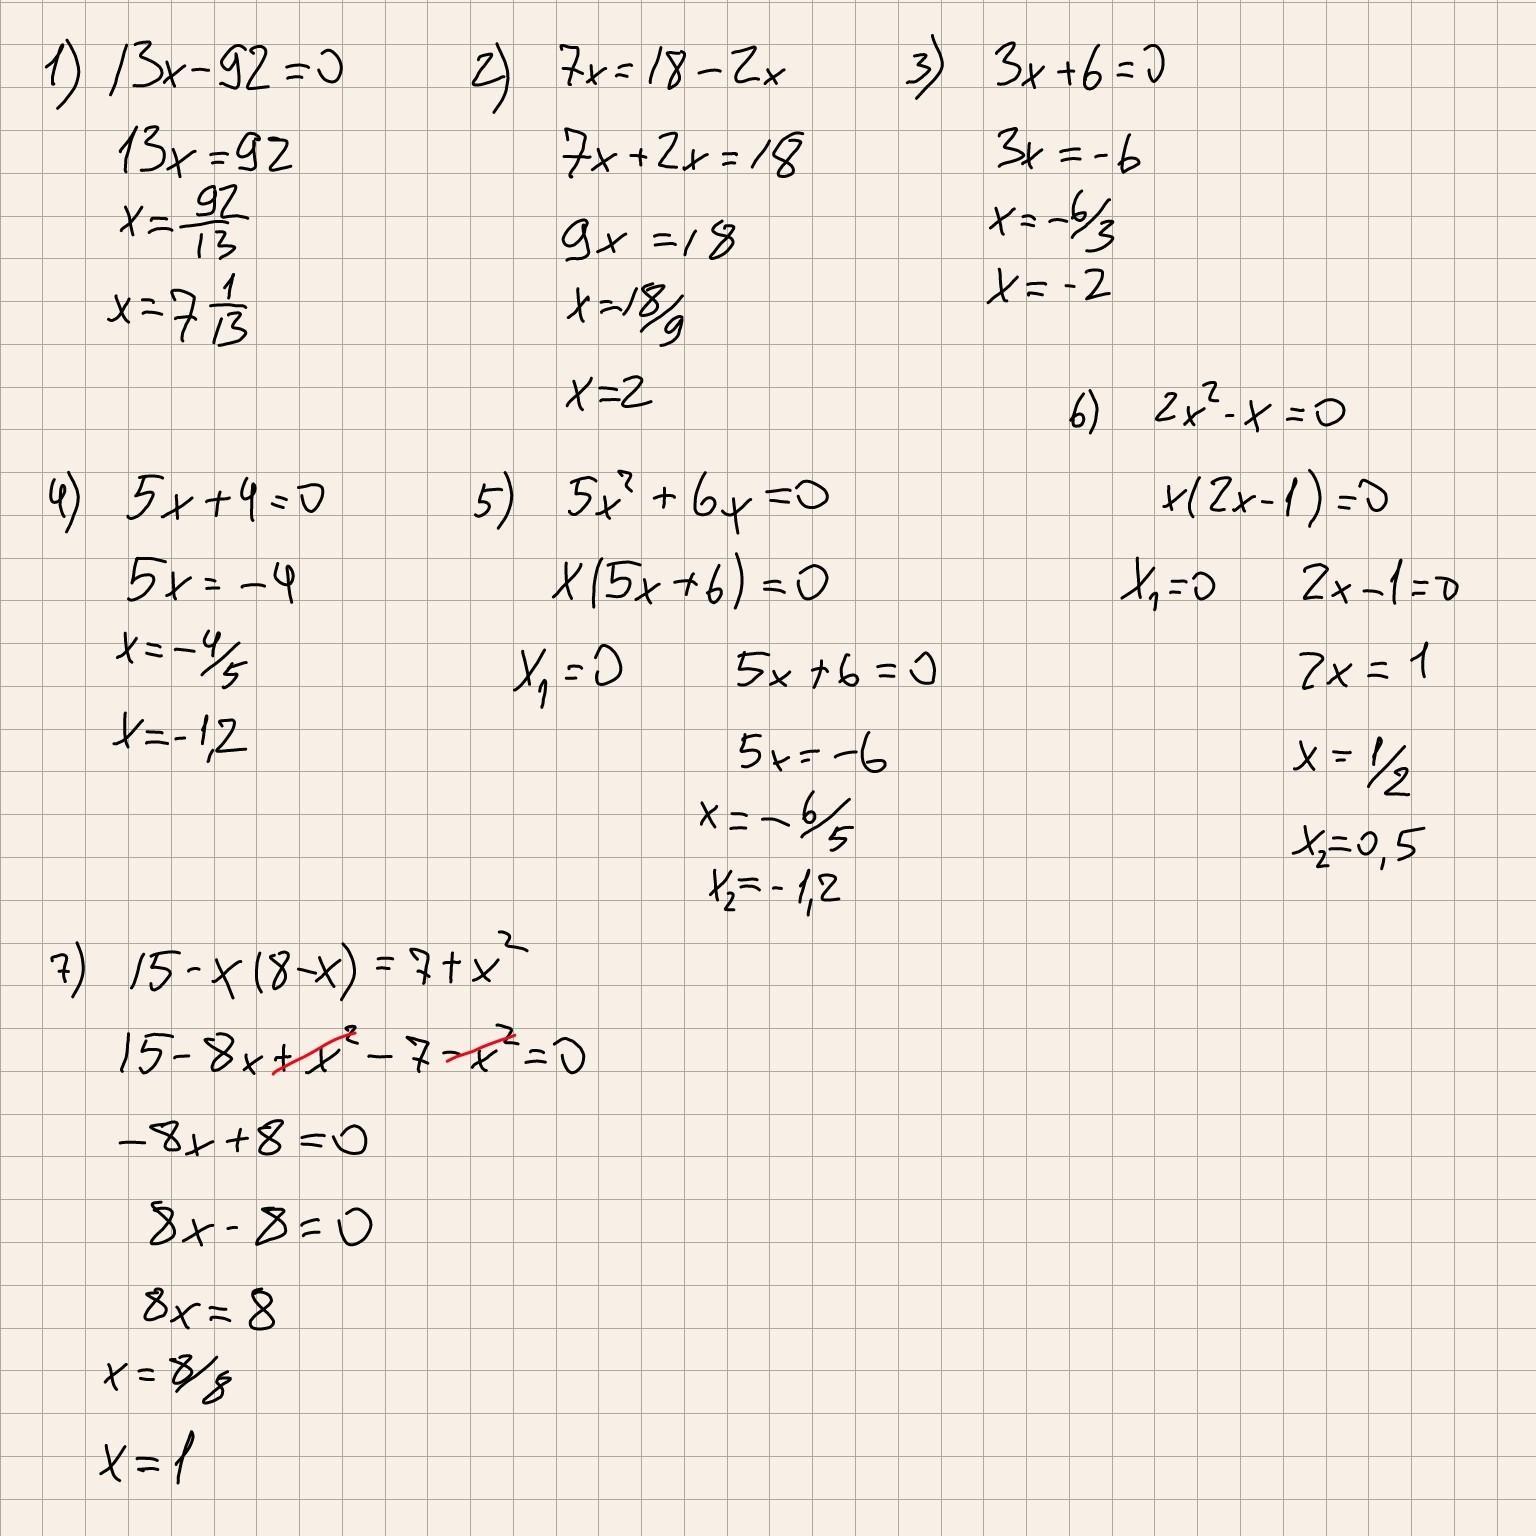 1) 13x-92=0
13x=92
x=92/13
x=7 1/13
2) 7x=18-2x
7x+2x=18
9x=18
x=18/9
x=2
3) 3x+6=0
3x=-6
x=-6/3
x=-2
4) 5x+4=0
5x=-4
x=-4/5
x=-1,2
5) 5x²+6x=0
x(5x+6)=0
x₁=0 5x+6=0
5x=-6
x=-6/5
x₂=-1,2
6) 2x²-x=0
x(2x-1)=0
x₁=0 2x-1=0
2x=1
x=1/2
x₂=0,5
7) 15-x(8-x)=7+x²
15-8x+x²-7-x²=0
-8x+8=0
8x-8=0
8x=8
x=8/8
x=1